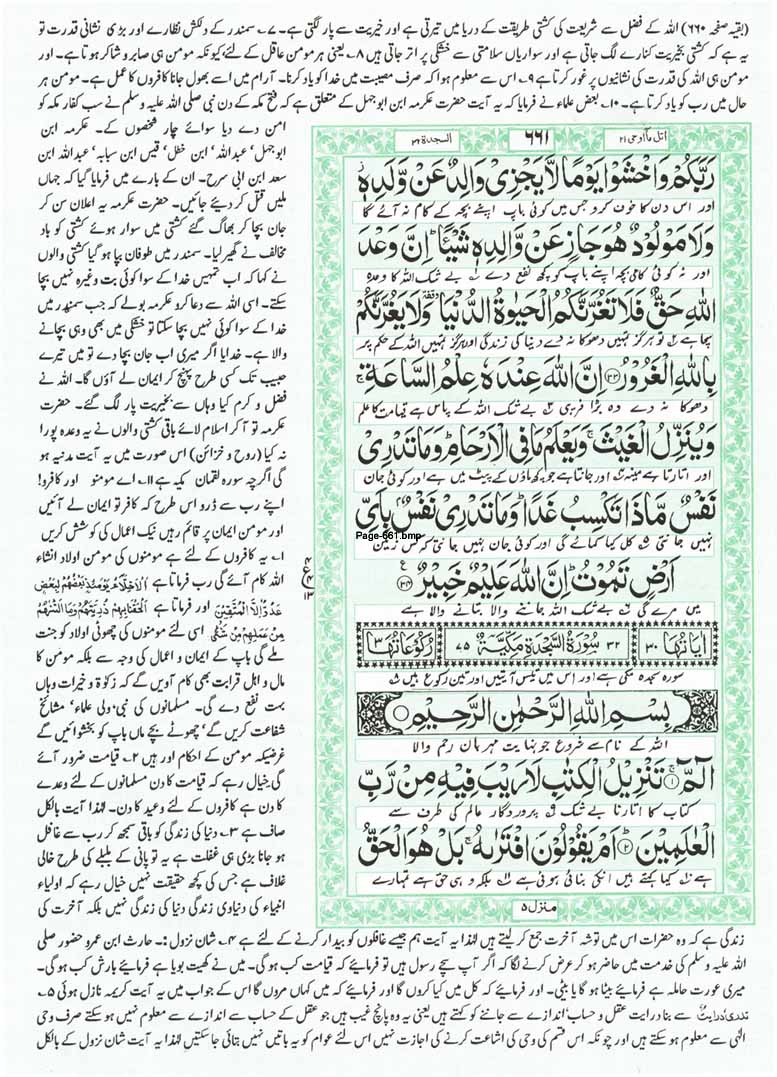 (بقیہ صفحہ ۶۶۰) اللہ کے فضل سے شریعت کی کشتی طریقت کے دریا میں تیرتی ہے اور خیریت سے پار لگتی ہے۔ ۷۔ سمندر کے دلکش نظارے اور بڑی نشانی قدرت تو
یہ ہے کہ کشتی بخیریت کنارے لگ جاتی ہے اور سواریاں سلامتی سے خشکی پر اتر جاتی ہیں ۸۔ یعنی ہر مومن عاقل کے لئے کیونکہ مومن ہی صابر و شاکر ہوتا ہے۔ اور
مومن ہی اللہ کی قدرت کی نشانیوں پر غور کرتا ہے ۹۔ اس سے معلوم ہوا کہ صرف مصیبت میں خدا کو یاد کرنا۔ آرام میں اسے بھول جانا کافروں کا عمل ہے۔ مومن ہر
حال میں رب کو یاد کرتا ہے۔ ۱۰۔ بعض علماء نے فرمایا کہ یہ آیت حضرت عکرمہ ابن ابوجہل کے متعلق ہے کہ فتح مکہ کے دن نبی صلی اللہ علیہ وسلم نے سب کفار مکہ کو
امن دے دیا سوائے چار شخصوں کے۔ عکرمہ ابن
ابوجہل، عبداللہ، ابن خطل، قیس ابن سبابہ، عبداللہ ابن
سعد ابن ابی سرح۔ ان کے بارے میں فرمایا گیا کہ جہاں
ملیں قتل کر دیئے جائیں۔ حضرت عکرمہ یہ اعلان سن کر
جان بچا کر بھاگ گئے کشتی میں سوار ہوئے کشتی کو باد
مخالف نے گھیر لیا۔ سمندر میں طوفان بپا ہو گیا کشتی والوں
نے کہا کہ اب تمہیں خدا کے سوا کوئی بت وغیرہ نہیں بچا
سکتے۔ اسی اللہ سے دعا کرو عکرمہ بولے کہ جب سمندر میں
خدا کے سوا کوئی نہیں بچا سکتا تو خشکی میں بھی وہی بچانے
والا ہے۔ خدایا اگر میری اب جان بچا دے تو میں تیرے
حبیب تک کسی طرح پہنچ کر ایمان لے آؤں گا۔ اللہ نے
فضل و کرم کیا وہاں سے بخیریت پار لگ گئے۔ حضرت
عکرمہ تو آ کر اسلام لائے باقی کشتی والوں نے یہ وعدہ پورا
نہ کیا (روح و خزائن) اس صورت میں یہ آیت مدنیہ ہو
گی اگرچہ سورہ لقمان مکیہ ہے ۱۱۔ اے مومنو اور کافرو!
اپنے رب سے ڈرو اس طرح کہ کافر تو ایمان لے آئیں
اور مومن ایمان پر قائم رہیں نیک اعمال کی کوشش کریں
۱۔ یہ کافروں کے لئے ہے مومنوں کی مومن اولاد انشاء
اللہ کام آئے گی رب فرماتا ہے اَلْاَخِلَّآءُ یَوْمَئِذٍۭ بَعْضُهُمْ لِبَعْضٍ
عَدُوٌّ اِلَّا الْمُتَّقِیْنَ اور فرماتا ہے اَلْحَقْنَا بِهِمْ ذُرِّیَّتَهُمْ وَمَا اَلَتْنٰهُمْ
مِنْ عَمَلِهِمْ مِنْ شَیْءٍ اسی لئے مومنوں کی چھوٹی اولاد کو جنت
ملے گی باپ کے ایمان و اعمال کی وجہ سے بلکہ مومن کا
مال و اہل قرابت بھی کام آویں گے کہ زکوٰۃ و خیرات وہاں
بہت نفع دے گی۔ مسلمانوں کی نبی، ولی علماء، مشائخ
شفاعت کریں گے، چھوٹے بچے ماں باپ کو بخشوائیں گے
غرضیکہ مومن کے احکام اور ہیں ۲۔ قیامت ضرور آئے
گی خیال رہے کہ قیامت کا دن مسلمانوں کے لئے وعدے
کا دن ہے کافروں کے لئے وعید کا دن۔ لہٰذا آیت بالکل
صاف ہے ۳۔ دنیا کی زندگی کو باقی سمجھ کر رب سے غافل
ہو جانا بڑی ہی غفلت ہے یہ تو پانی کے بلبلے کی طرح خالی
غلاف ہے جس کی کچھ حقیقت نہیں خیال رہے کہ اولیاء
انبیاء کی دنیاوی زندگی دنیا کی زندگی نہیں بلکہ آخرت کی
اتل ما اوحی ۲۱
۶۶۱
السجدة ۳۲
رَبَّكُمْ وَاخْشَوْا يَوْمًا لَّا يَجْزِيْ وَالِدٌ عَنْ وَّلَدِهٖ
اور اس دن کا خوف کرو جس میں کوئی باپ اپنے بچہ کے کام نہ آئے گا
وَلَا مَوْلُوْدٌ هُوَ جَازٍ عَنْ وَّالِدِهٖ شَيْـًٔا اِنَّ وَعْدَ
اور نہ کوئی کامی بچہ اپنے باپ کو کچھ نفع دے بے شک اللہ کا وعدہ
اللّٰهِ حَقٌّ فَلَا تَغُرَّنَّكُمُ الْحَيٰوةُ الدُّنْيَا وَلَا يَغُرَّنَّكُمْ
سچا ہے تو ہرگز تمہیں دھوکا نہ دے دنیا کی زندگی اور ہرگز تمہیں اللہ کے حکم پر
بِاللّٰهِ الْغَرُوْرُ ۝۳۳ اِنَّ اللّٰهَ عِنْدَهٗ عِلْمُ السَّاعَةِ
دھوکا نہ دے وہ بڑا فریبی بے شک اللہ کے پاس ہے قیامت کا علم
وَيُنَزِّلُ الْغَيْثَ وَيَعْلَمُ مَا فِي الْاَرْحَامِ وَمَا تَدْرِيْ
اور اتارتا ہے مینہ اور جانتا ہے جو کچھ ماؤں کے پیٹ میں ہے اور کوئی جان
نَفْسٌ مَّاذَا تَكْسِبُ غَدًا وَمَا تَدْرِيْ نَفْسٌ بِاَيِّ
Page-661.bmp
نہیں جانتی کہ کل کیا کمائے گی اور کوئی جان نہیں جانتی کہ کس زمین
اَرْضٍ تَمُوْتُ اِنَّ اللّٰهَ عَلِيْمٌ خَبِيْرٌ ۝۳۴
میں مرے گی بے شک اللہ جاننے والا بتانے والا ہے
اٰيَاتُهَا ۳۰ ۳۲ سُوْرَةُ السَّجْدَةِ مَكِّيَّةٌ ۷۵ رُكُوْعَاتُهَا ۳
سورہ سجدہ مکی ہے اور اس میں تیس آیتیں اور تین رکوع ہیں
بِسْمِ اللّٰهِ الرَّحْمٰنِ الرَّحِيْمِ
اللہ کے نام سے شروع جو نہایت مہربان رحم والا
الٓمّٓ ۝۱ تَنْزِيْلُ الْكِتٰبِ لَا رَيْبَ فِيْهِ مِنْ رَّبِّ
کتاب کا اتارنا بے شک پروردگار عالم کی طرف سے
الْعٰلَمِيْنَ ۝۲ اَمْ يَقُوْلُوْنَ افْتَرٰىهُ بَلْ هُوَ الْحَقُّ
ہے کیا کہتے ہیں انکی بنائی ہوئی ہے بلکہ وہی حق ہے تمہارے
منزل ۵
زندگی ہے کہ وہ حضرات اس میں توشہ آخرت جمع کر لیتے ہیں لہٰذا یہ آیت ہم جیسے غافلوں کو بیدار کرنے کے لئے ہے ۴۔ شان نزول:۔ حارث ابن عمرو حضور صلی
اللہ علیہ وسلم کی خدمت میں حاضر ہو کر عرض کرنے لگا کہ اگر آپ سچے رسول ہیں تو فرمائیے کہ قیامت کب ہو گی۔ میں نے کھیت بویا ہے فرمائیے بارش کب ہو گی۔
میری عورت حاملہ ہے فرمائیے بیٹا ہو گا یا بیٹی۔ اور فرمائیے کہ کل میں کیا کروں گا اور فرمائیے کہ میں کہاں مروں گا اس کے جواب میں یہ آیت کریمہ نازل ہوئی ۵۔
تدری درایت سے بنا درایت عقل و حساب، اندازے سے جاننے کو کہتے ہیں یعنی یہ وہ پانچ غیب ہیں جو عقل کے حساب سے اندازے سے معلوم نہیں ہو سکتے صرف وحی
الٰہی سے معلوم ہو سکتے ہیں اور چونکہ اس قسم کی وحی کی اشاعت کرنے کی اجازت نہیں اس لئے عوام کو یہ باتیں نہیں بتائی جا سکتیں لہٰذا یہ آیت شان نزول کے بالکل